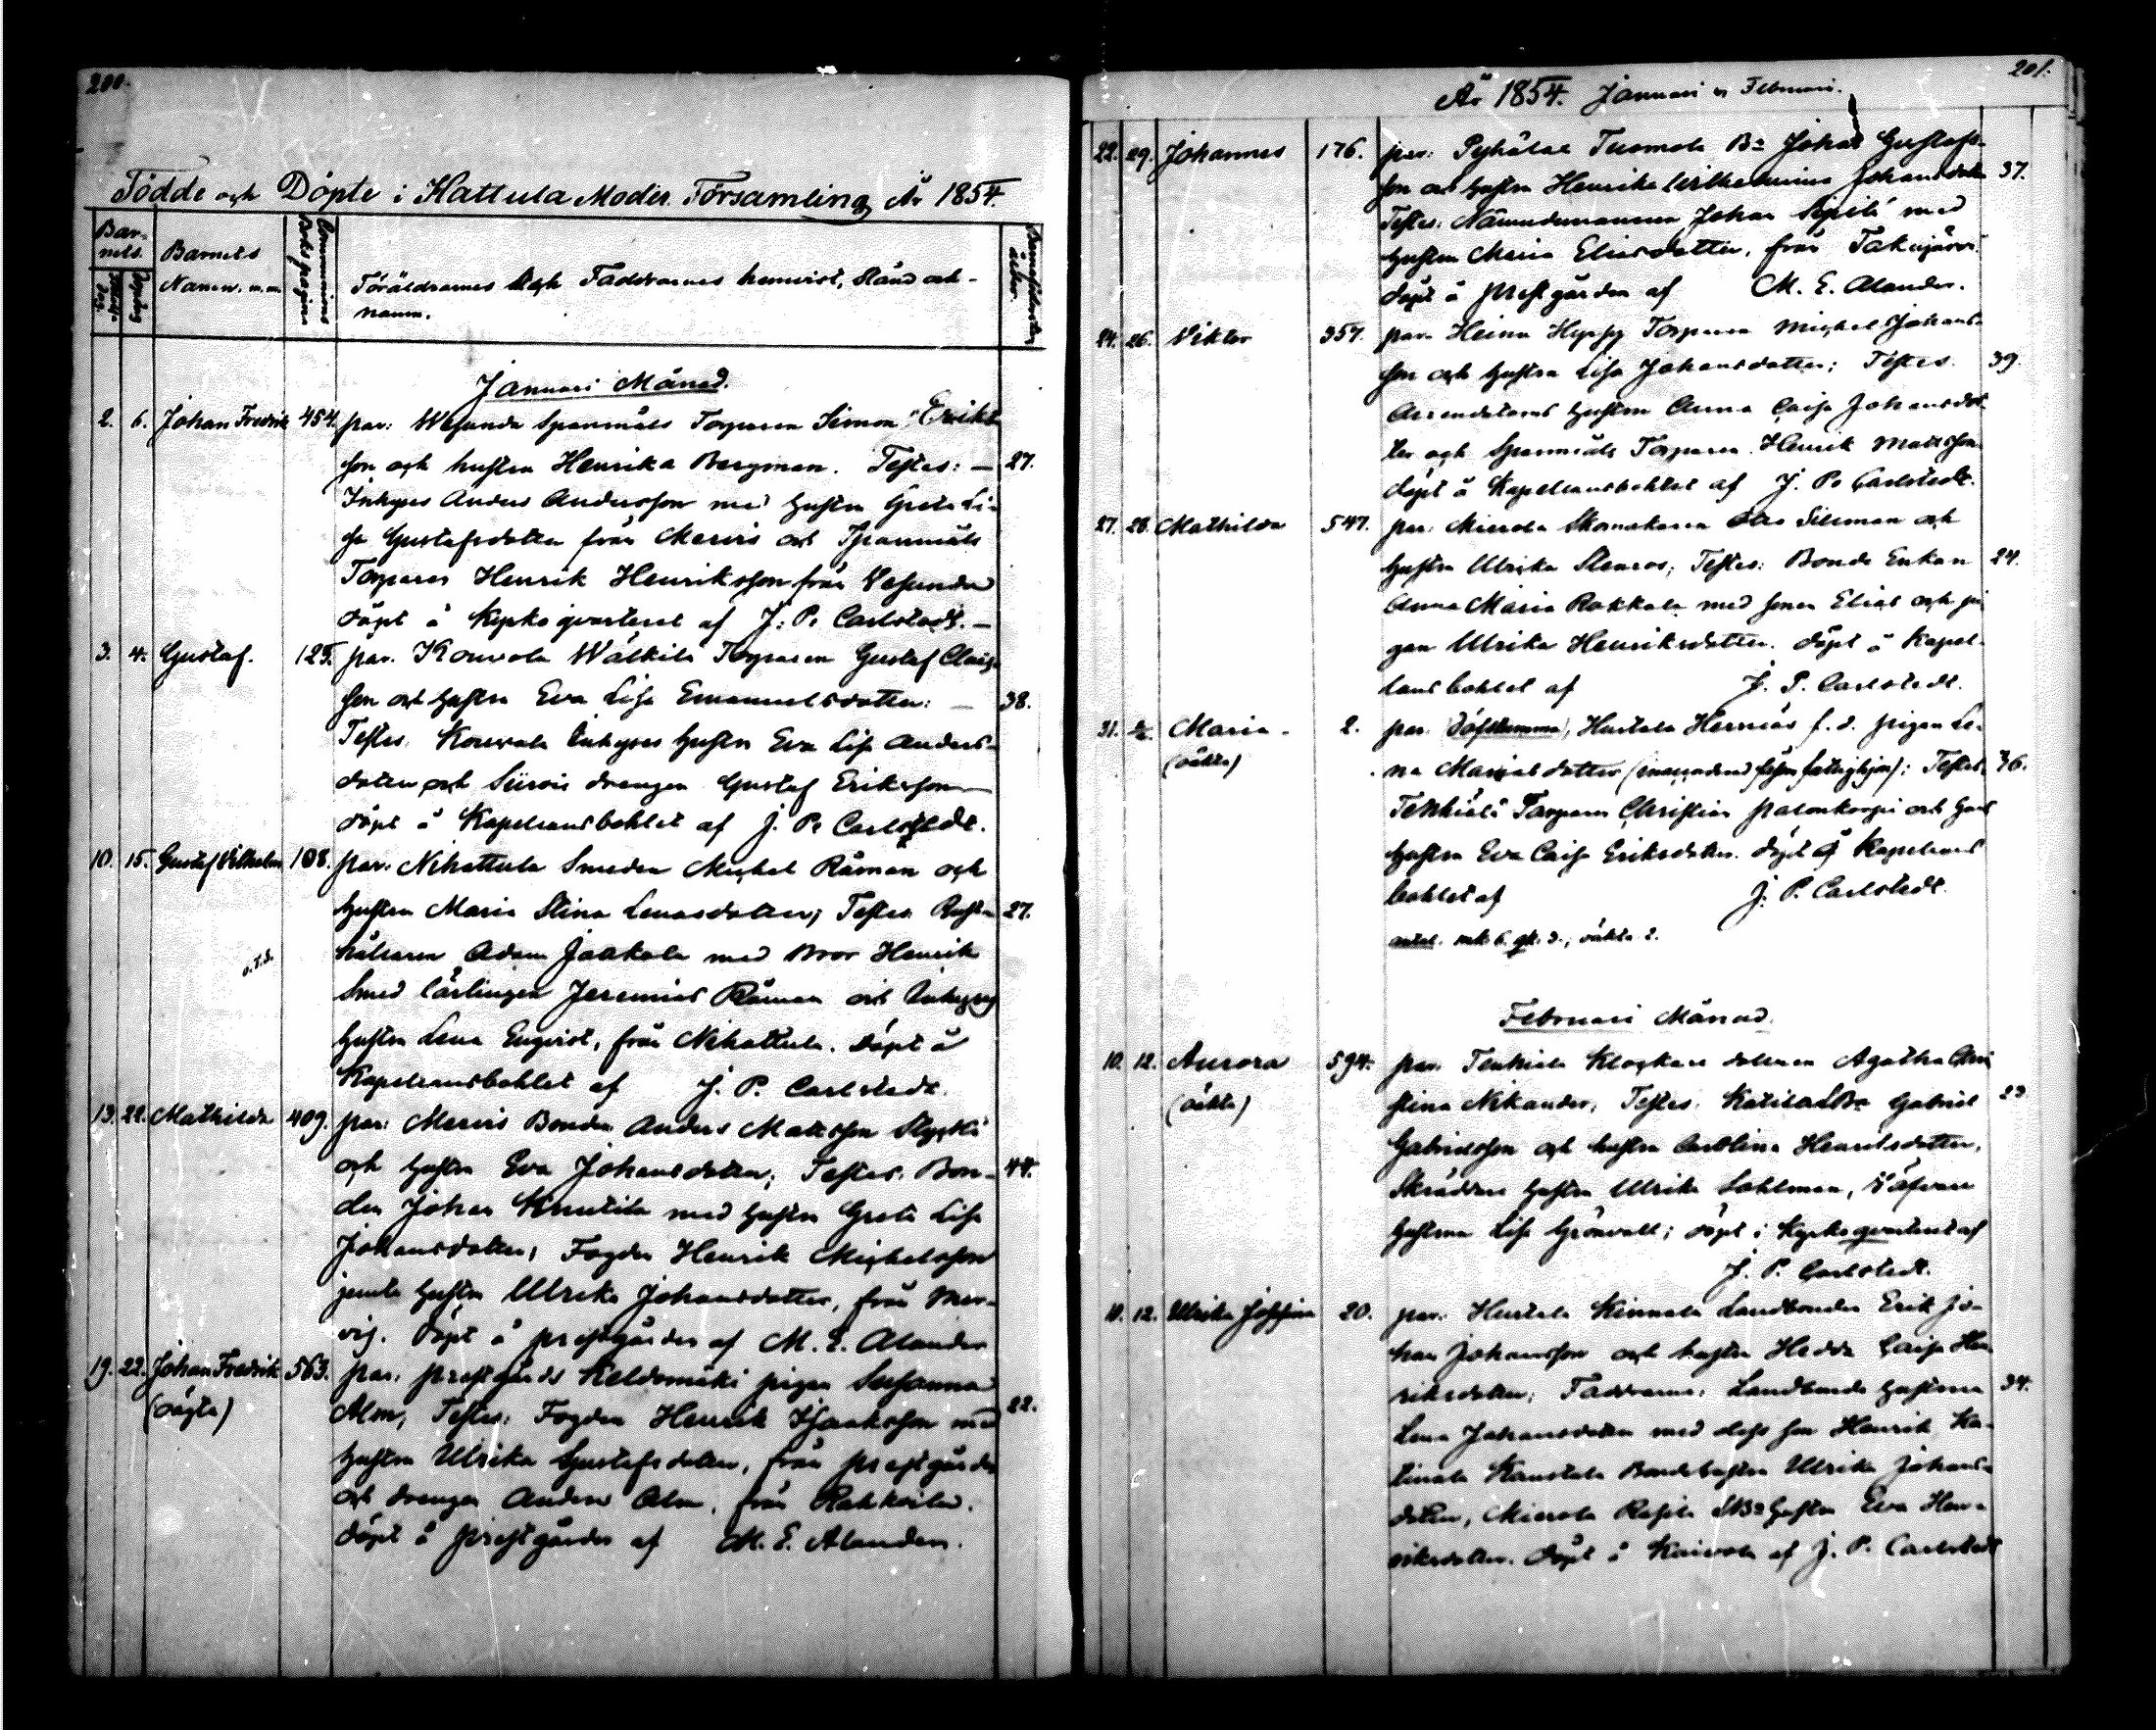 200.
Födde och Döpte i Hattula Moder Församling År 1854.
Barnets
Barnets Namn. m.m.
Föräldrarnes och Faddrarnes hemvist, Stånd och
namn.
Januari Månad.
2. 6. Johan Fredrik 454. par: Wesunda Sparnmäls Torparen Simon Eriks
son och hustru Henrika Bergman. Testes: — 27.
Inhyses Anders Andersson med hustru Greta Li-
sa Gustafsdotter från Mervis och
Torparen Henrik Henriksson från Vesunda
döpt å Kyrkoqvarteret af J. P. Carlstedt. —
3. 4. Gustaf. 125. par. Kouvola Wälkilä Torparen Gustaf Clas
son och hustru Eva Lisa Emanuelsdotter: — 38.
Testes. Kouvola Inhyses hustru Eva Lisa Anders-
dotter och Siirois drengen Gustaf Eriksson —
döpt å Kapellansbohlet af J. P. Carlstedt.
10. 15. Gustaf Vilhelm 108. par. Nihattula Smeden Michel Råman och
hustru Maria Stina Lenasdotter; Testes Rust- 27.
hållaren Adam Jaakola med Bror Henrik
Smed lärlingen Jeremias Råman och Inhyses
hustru Lena Enqvist, från Nihattula. Döpt å
Kapellansbohlet af J. P. Carlstedt.
13. 22. Mathilda 409. par: Mervis Bonden Anders Mattsson
och hustru Eva Johansdotter; Testes. Bon- 44.
den Johan Knutila med hustru Greta Lisa
Johansdotter, Fogden Henrik Michelsson
jemte hustru Ulrika Johansdotter, från Mer-
vis. Döpt å prestgården af M. E. Alander
19. 22. Johan Fredrik 563. par. prestgårds Keldomäki pigan Susanna
(oägta) Alm, Testes: Fogden Henrik Isaaksson med 22.
hustru Ulrika Gustafsdotter, från prestgården
och drengen Anders Alm, från Rahkoila.
döpt å prestgården af M. E. Alander.
201.
År 1854. Januari o Februari.
22. 29. Johannes 176. par: Pyhälax Tuomola Bn Johan Gustafs-
son och hustru Henrika Wilhelmina Johansdotter 37.
Testes: Nämndemannen Johan Sipilä med
hustru Maria Eliasdotter, från Takajärvi.
döpt å Prestgården af M. E. Alander.
24. 26. Viktor 357. par. Heinu Hyppy Torparen Michel Johans-
son och hustru Lisa Johansdotter; Testes. 39.
Arrendatorns hustru Anna Caisa Johansdot-
ter och Torparen Henrik Mattsson
döpt å Kapellansbohlet af J. P. Carlstedt.
27. 28. Mathilda 547. par: Mierola Skomakaren Otto Silman och
hustru Ulrika Stenros; Testes: Bonde Enkan 24.
Anna Maria Rokkala med sonen Elias och pi-
gan Ulrika Henriksdotter. Döpt å Kapel-
lansbohlet af J. P. Carlstedt.
31. Maria - 2. par. Döfstumma, Hurtala Herniäs f. d. pigan Le-
(oäkta) na Mariasdotter; Testes. 36.
Tenhiälä Torparen Christian Palonkorpi och hans
hustru Eva Caisa Eriksdotter. Döpt å Kapellans
bohlet af J. P. Carlstedt.
Februari Månad.
10. 12. Aurora 594. par. Tenhiälä Klockare dottern Agatha Chri
(oäkta) stina Nikander; Testes. Katila Bn Gabriel 23
Gabrielsson och hustru Carolina Henriksdotter,
Skräddare hustru Ulrika Sahlman,
hustrun Lisa Grönvall; döpt i Kyrkoqvarteret af
J. P. Carlstedt.
10. 12. Ulrika Josefina 20. par. Hurtala Kinnala Landbonden Erik Jo-
han Johansson och hustru Hedda Caisa Hen
riksdotter; Faddrarne: Landbonde hustrun 34.
Lena Johansdotter med dess son Henrik Ka-
Bondehustrun Ulrika Johans-
dotter, Mierola hustru Eva Hen-
riksdotter. Döpt å Kaivola af J. P. Carlstedt